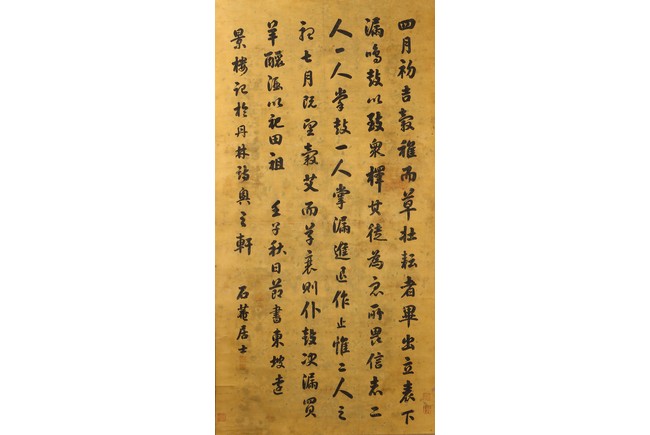 四月初吉穀稚而草壯耘者畢出立表下
漏鳴鼓以致衆擇其徒為衆所畏信者二
人一人掌鼓一人掌漏進退作止惟二人之
聽七月既望穀艾而草衰則仆鼓決漏買
羊釀酒以祀田祖 壬子秋日節書東坡遠
景樓記於丹林詩興之軒 石菴居士